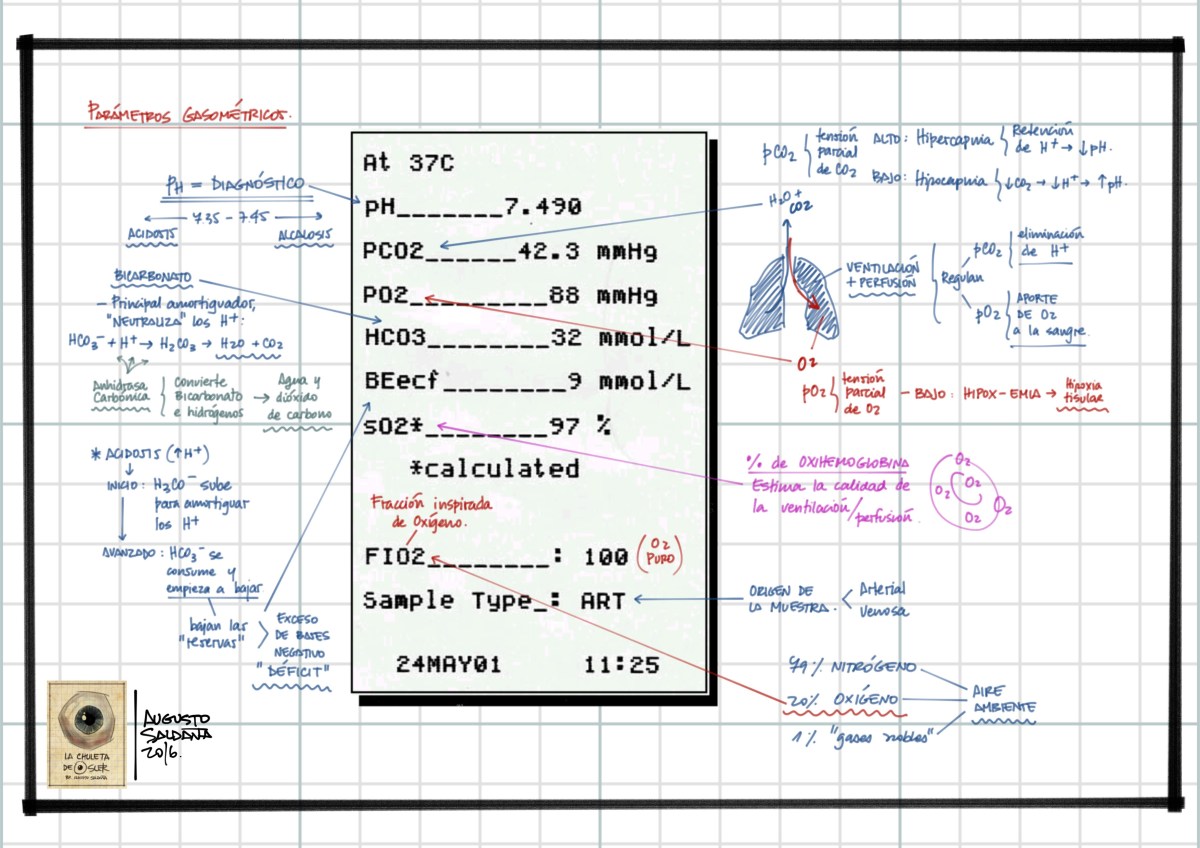 PARÁMETROS GASOMÉTRICOS.
PH = DIAGNÓSTICO
7.35 - 7.45
ACIDOSIS
ALCALOSIS
BICARBONATO
- Principal amortiguador,
"NEUTRALIZA" los H+:
HCO3- + H+ → H2CO3 → H2O + CO2
Anhidrasa
Carbónica
Convierte
Bicarbonato
e hidrógenos
→
Agua y
dióxido
de carbono
* ACIDOSIS (↑H+)
INICIO: H2CO- sube
para amortiguar
los H+
AVANZADO: HCO3- se
consume y
empieza a bajar
bajan las
"reservas"
EXCESO
DE BASES
NEGATIVO
"DÉFICIT"
At 37C
pH_______7.490
PCO2______42.3 mmHg
PO2_________88 mmHg
HCO3________32 mmol/L
BEecf________9 mmol/L
sO2*________97 %
*calculated
Fracción inspirada
de Oxígeno.
FIO2________: 100 (O2 PURO)
Sample Type_: ART
24MAY01 11:25
pCO2
tensión
parcial
de CO2
ALTO: Hipercapnia
Retención
de H+ → ↓pH.
BAJO: Hipocapnia
↓CO2 → ↓H+ → ↑pH.
H2O +
CO2
VENTILACIÓN
+ PERFUSIÓN
Regulan
pCO2
eliminación
de H+
pO2
APORTE
DE O2
a la sangre.
O2
pO2
tensión
parcial
de O2
- BAJO: HIPOX-EMIA →
Hipoxia
tisular
% de OXIHEMOGLOBINA
Estima la calidad de
la ventilación/perfusión.
O2
O2
O2
O2
O2
ORIGEN DE
LA MUESTRA.
Arterial
Venosa
79% NITRÓGENO
20% OXÍGENO
1% "gases nobles"
AIRE
AMBIENTE
LA CHULETA
DE OSLER
BY AUGUSTO SALDAÑA
AUGUSTO
SALDAÑA
2016.